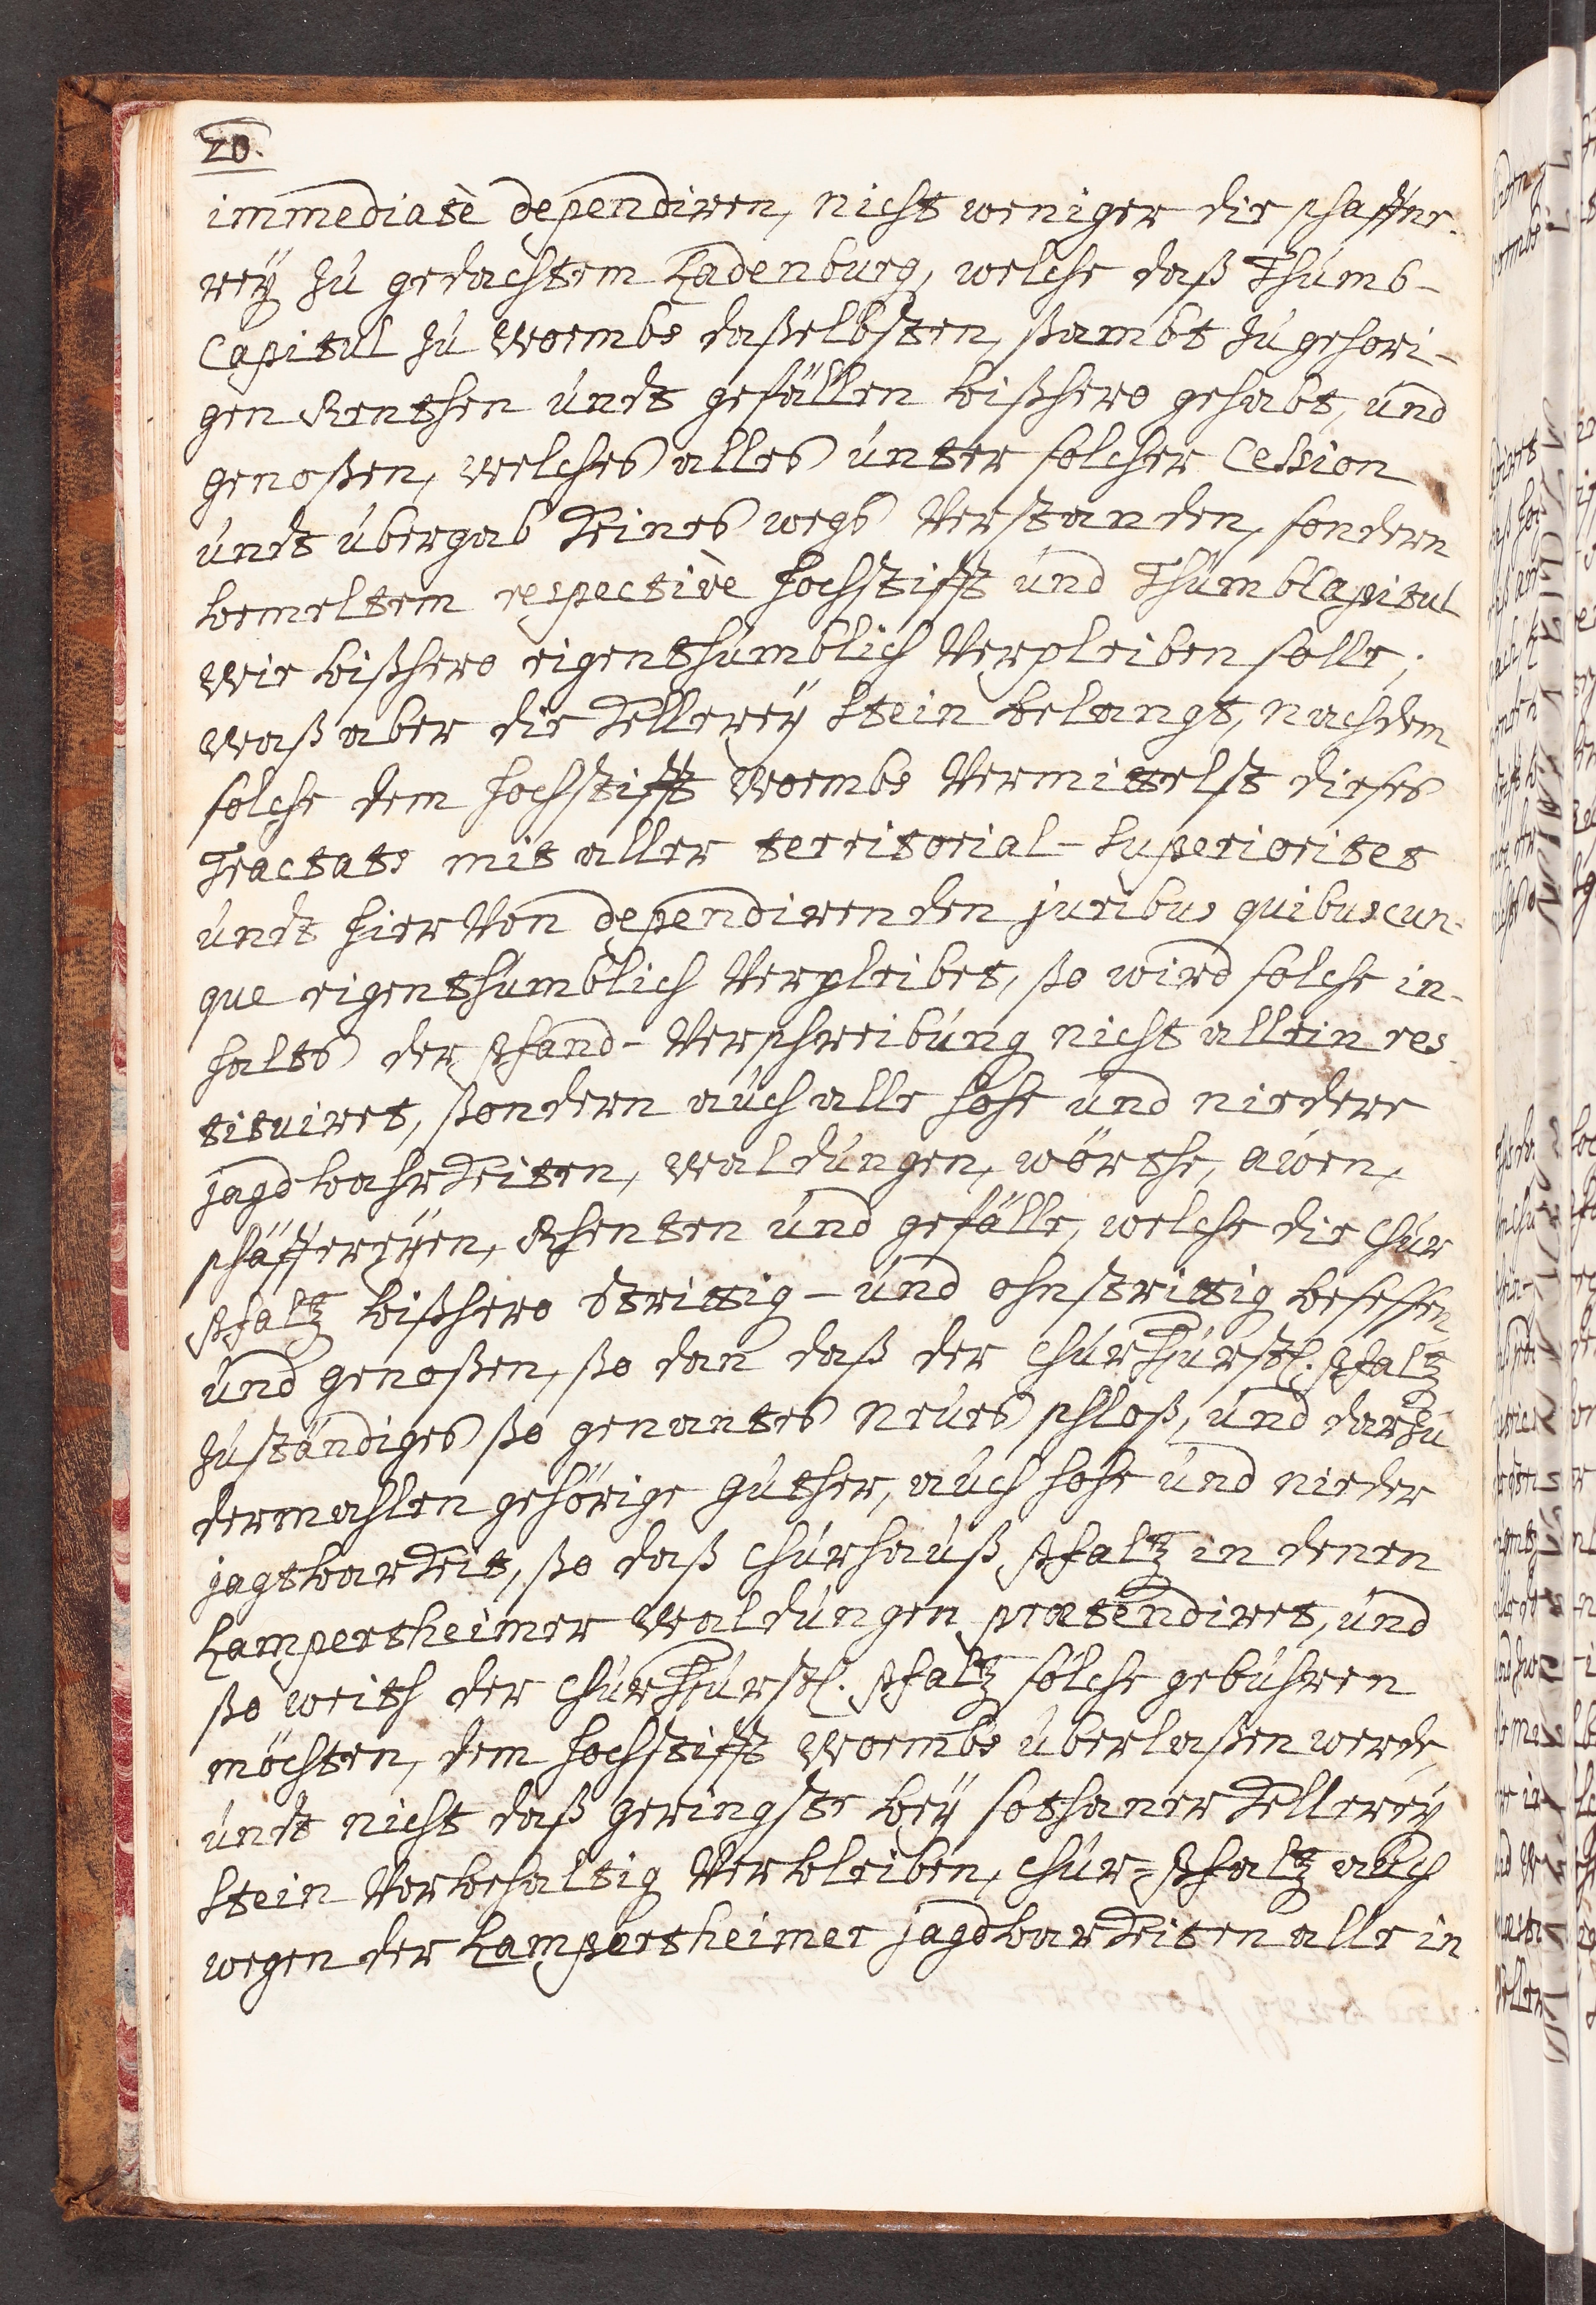 20.
immediatè dependiren, nicht weniger die schaffne-
rey zu gedachtem Ladenburg, welche daß Thumb-
Capitul zu Wormbs daßelbsten, sambt zugehori-
gen Renthen undt gefällen bißhero gehabt, und
genoßen, welches alles unter solcher Cession
undt übergab keines wegs Verstanden, sondern
bemeltem respectivè Hochstifft und ThumbCapitul
wie bißhero eigenthumblich Verpleiben solle;
waß aber die Kellerey Stein belangt, nachdem
solche dem Hochstifft Wormbs Vermittelst dieses
Tractats mit aller territorial-Superioritet
undt hierVon dependirenden juribus quibuscun-
que eigenthumblich Verpleibet, so wird solche in-
halts der Pfand-Verschreibung nicht allein res-
tituiret, sondern auch alle hohe und niedere
jagdbahrkeiten, waldungen, wörthe, auen,
schäffereyen, Rhenten und gefälle, welche die Chur
Pfaltz bißhero strittig- und ohnstrittig besessen
und genoßen, so dan daß der ChurFürstl. Pfaltz
zuständiges so genantes neues schloß, und darzu
dermahlen gehörige guther, auch hohe und nieder
jagtbarkeit, so daß Churhauß Pfaltz in denen
Lampertheimer Waldungen prætendiret, und
so weith der ChurFürstl. Pfaltz solche gebühren
möchten, dem Hochstifft Wormbs überlaßen werde,
undt nicht daß geringste bey sothaner Kellerey
Stein Vorbehaltig Verbleiben, Chur-Pfaltz auch
wegen der Lampertheimer jagdbarkeiten alle in